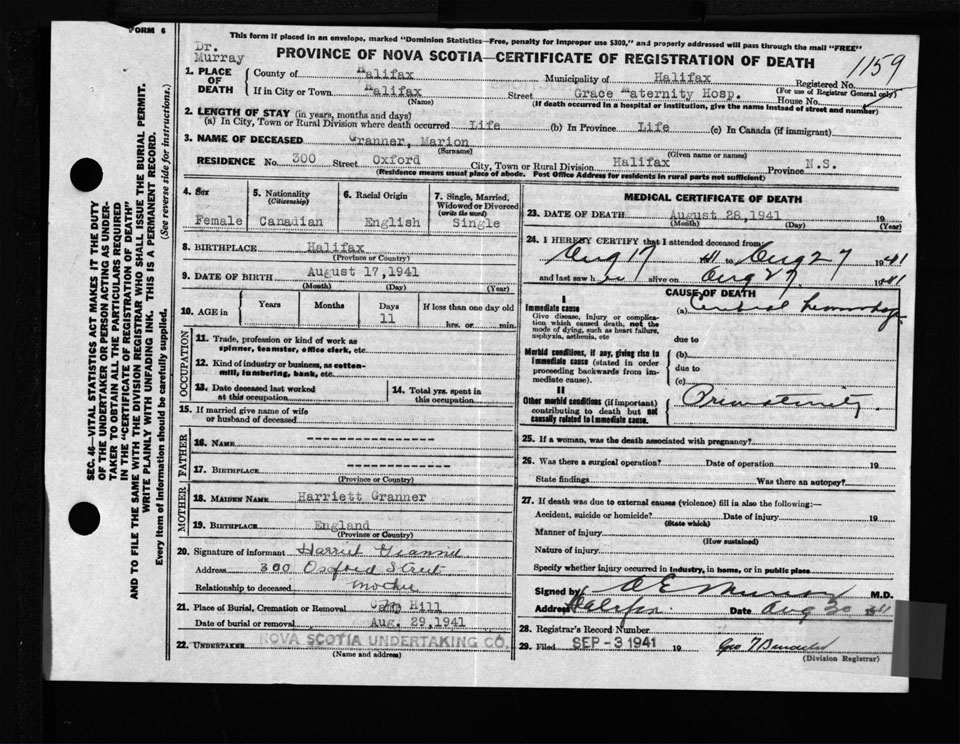 FORM 6
This form if placed in an envelope, marked "Dominion Statistics—Free, penalty for improper use $300," and properly addressed will pass through the mail "FREE"
Dr. Murray
PROVINCE OF NOVA SCOTIA—CERTIFICATE OF REGISTRATION OF DEATH
1159
1. PLACE OF DEATH
County of Halifax Municipality of Halifax Registered No.
(For use of Registrar General only)
If in City or Town Halifax Street Grace Maternity Hosp. House No.
(Name) (If death occurred in a hospital or institution, give the name instead of street and number)
2. LENGTH OF STAY (in years, months and days)
(a) In City, Town or Rural Division where death occurred Life (b) In Province Life (c) In Canada (if immigrant)
3. NAME OF DECEASED Granner, Marion
(Surname) (Given name or names)
RESIDENCE No. 300 Street Oxford City, Town or Rural Division Halifax Province N.S.
(Residence means usual place of abode. Post Office Address for residents in rural parts not sufficient)
4. Sex Female
5. Nationality (Citizenship) Canadian
6. Racial Origin English
7. Single, Married, Widowed or Divorced (write the word) Single
8. BIRTHPLACE Halifax
(Province or Country)
9. DATE OF BIRTH August 17, 1941
(Month) (Day) (Year)
10. AGE in Years Months Days 11 If less than one day old hrs. or min.
OCCUPATION
11. Trade, profession or kind of work as spinner, teamster, office clerk, etc.
12. Kind of industry or business, as cotton-mill, lumbering, bank, etc.
13. Date deceased last worked at this occupation
14. Total yrs. spent in this occupation
15. If married give name of wife or husband of deceased
FATHER
16. NAME ---------------
17. BIRTHPLACE ------------
(Province or Country)
MOTHER
18. MAIDEN NAME Harriett Granner
19. BIRTHPLACE England
(Province or Country)
20. Signature of informant Harriet
Address 300 Oxford Street
Relationship to deceased mother
21. Place of Burial, Cremation or Removal Hill
Date of burial or removal Aug. 29, 1941
22. UNDERTAKER NOVA SCOTIA UNDERTAKING CO.
(Name and address)
MEDICAL CERTIFICATE OF DEATH
23. DATE OF DEATH August 28, 1941 19
(Month) (Day) (Year)
24. I HEREBY CERTIFY that I attended deceased from:
Aug 17 41 to Aug 27 1941
and last saw her alive on Aug 27 1941
CAUSE OF DEATH
I
Immediate cause
Give disease, injury or complication which caused death, not the mode of dying, such as heart failure, asphyxia, asthenia, etc
(a) Cerebral hemorrhage
due to
Morbid conditions, if any, giving rise to immediate cause (stated in order proceeding backwards from immediate cause).
(b)
due to
(c)
II
Other morbid conditions (if important) contributing to death but not causally related to immediate cause.
Prematurity.
25. If a woman, was the death associated with pregnancy?
26. Was there a surgical operation? Date of operation 19
State findings Was there an autopsy?
27. If death was due to external causes (violence) fill in also the following:—
Accident, suicide or homicide? Date of injury 19
(State which)
Manner of injury
(How sustained)
Nature of injury
Specify whether injury occurred in industry, in home, or in public place
Signed by M.D.
Address Halifax Date Aug 30 41
28. Registrar's Record Number
29. Filed SEP -3 1941 19
(Division Registrar)
SEC. 46—VITAL STATISTICS ACT MAKES IT THE DUTY
OF THE UNDERTAKER OR PERSON ACTING AS UNDER-
TAKER TO OBTAIN ALL THE PARTICULARS REQUIRED
IN THE "CERTIFICATE OF REGISTRATION OF DEATH"
AND TO FILE THE SAME WITH THE DIVISION REGISTRAR WHO SHALL ISSUE THE BURIAL PERMIT.
WRITE PLAINLY WITH UNFADING INK. THIS IS A PERMANENT RECORD.
Every item of information should be carefully supplied. (See reverse side for instructions.)